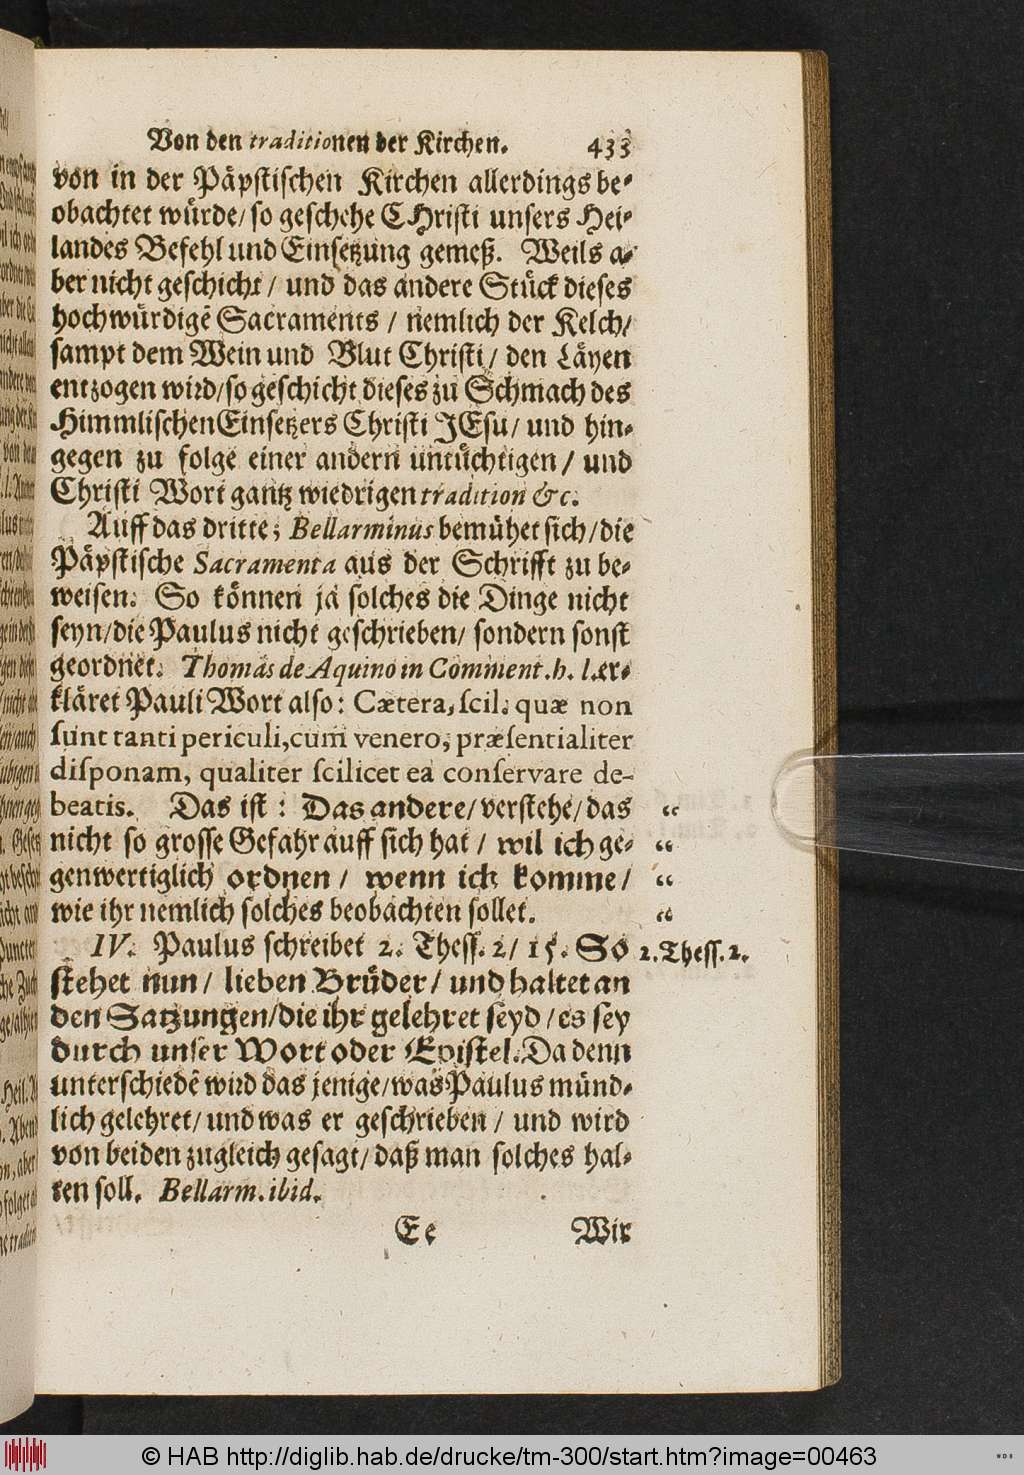 Von den traditionen der Kirchen. 433
von in der Päpstischen Kirchen allerdings be-
obachtet würde/ so geschehe CHristi unsers Hei-
landes Befehl und Einsetzung gemeß. Weils a-
ber nicht geschicht/ und das andere Stück dieses
hochwürdigẽ Sacraments/ nemlich der Kelch/
sampt dem Wein und Blut Christi/ den Läyen
entzogen wird/ so geschicht dieses zu Schmach des
Himmlischen Einsetzers Christi JEsu/ und hin-
gegen zu folge einer andern untüchtigen/ und
Christi Wort gantz wiedrigen tradition &c.
Auff das dritte; Bellarminus bemühet sich/ die
Päpstische Sacramenta aus der Schrifft zu be-
weisen. So können ja solches die Dinge nicht
seyn/ die Paulus nicht geschrieben/ sondern sonst
geordnet. Thomas de Aquino in Comment. h. l. er-
kläret Pauli Wort also: Cætera, scil. quæ non
sunt tanti periculi, cum venero, præsentialiter
disponam, qualiter scilicet ea conservare de-
beatis. Das ist: Das andere/ verstehe/ das “
nicht so grosse Gefahr auff sich hat/ wil ich ge- “
genwertiglich ordnen/ wenn ich komme/ “
wie ihr nemlich solches beobachten sollet. “
IV. Paulus schreibet 2. Thess. 2/ 15. So 2. Thess. 2.
stehet nun/ lieben Brüder/ und haltet an
den Satzungen/ die ihr gelehret seyd/ es sey
durch unser Wort oder Epistel. Da denn
unterschiedẽ wird das jenige/ was Paulus münd-
lich gelehret/ und was er geschrieben/ und wird
von beiden zugleich gesagt/ daß man solches hal-
ten soll. Bellarm. ibid.
Ee Wir
© HAB http://diglib.hab.de/drucke/tm-300/start.htm?image=00463